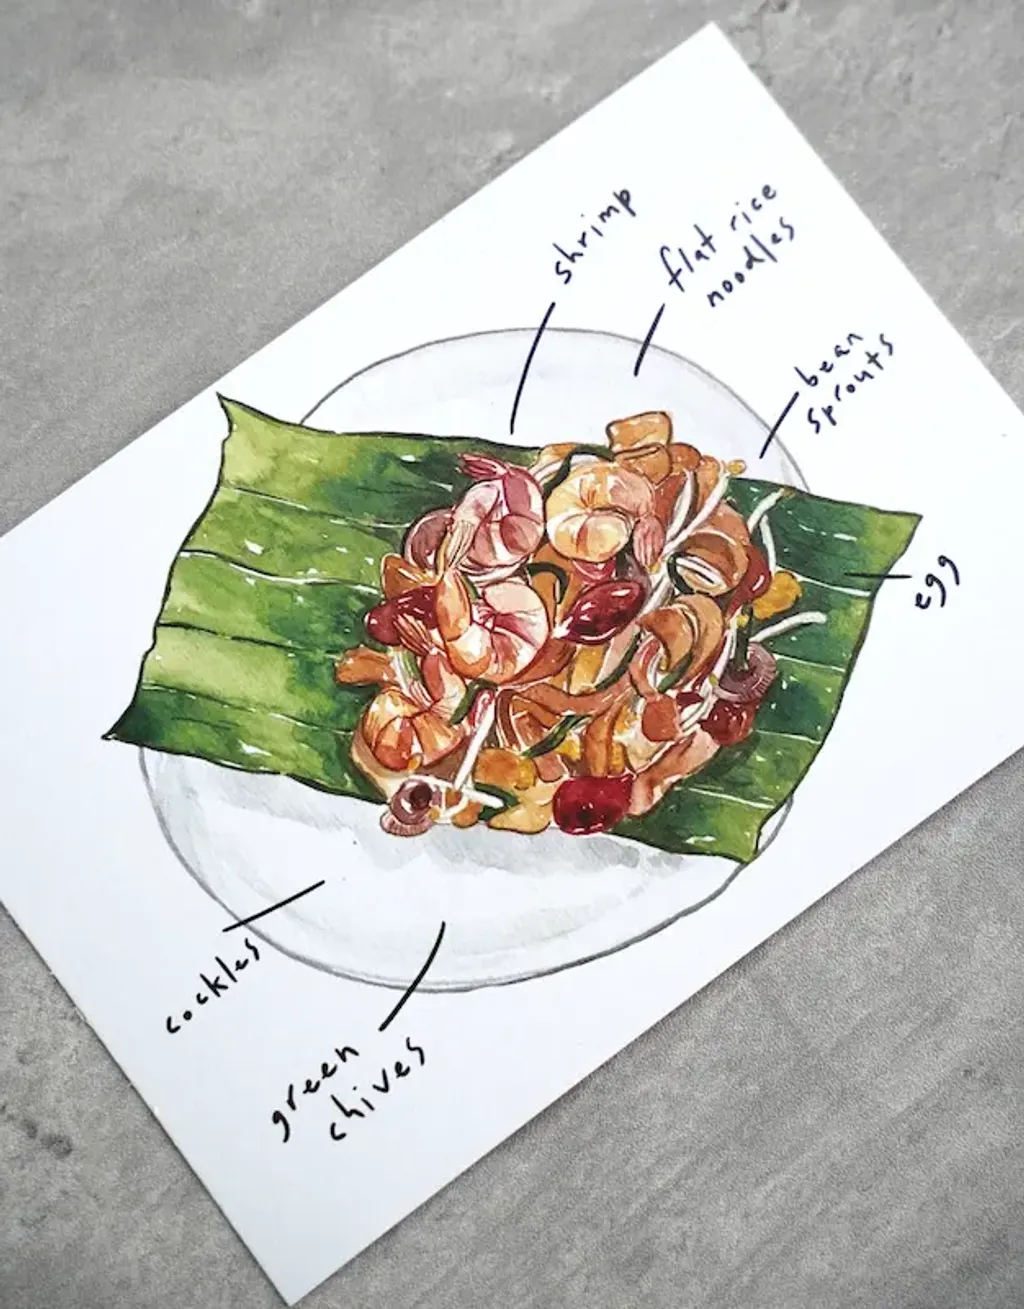 shrimp
flat rice
noodles
bean
sprouts
egg
cockles
green
chives